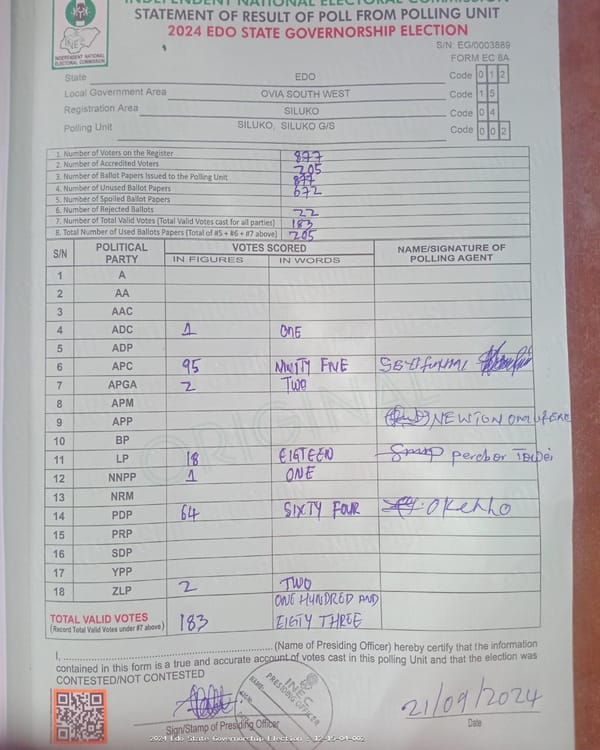 INDEPENDENT NATIONAL ELECTORAL COMMISSION
STATEMENT OF RESULT OF POLL FROM POLLING UNIT
2024 EDO STATE GOVERNORSHIP ELECTION
INEC
INDEPENDENT NATIONAL
ELECTORAL COMMISSION
S/N: EG/0003889
FORM EC 8A
State EDO Code 0 1 2
Local Government Area OVIA SOUTH WEST Code 1 5
Registration Area SILUKO Code 0 4
Polling Unit SILUKO, SILUKO G/S Code 0 0 2
1. Number of Voters on the Register 877
2. Number of Accredited Voters 205
3. Number of Ballot Papers Issued to the Polling Unit 877
4. Number of Unused Ballot Papers 672
5. Number of Spoiled Ballot Papers
6. Number of Rejected Ballots 22
7. Number of Total Valid Votes (Total Valid Votes cast for all parties) 183
8. Total Number of Used Ballots Papers (Total of #5 + #6 + #7 above) 205
S/N POLITICAL PARTY VOTES SCORED NAME/SIGNATURE OF POLLING AGENT
IN FIGURES IN WORDS
1 A
2 AA
3 AAC
4 ADC 1 ONE
5 ADP
6 APC 95 NINTY FIVE
7 APGA 2 TWO
8 APM
9 APP NEWTON
10 BP
11 LP 18 EIGTEEN
12 NNPP 1 ONE
13 NRM
14 PDP 64 SIXTY FOUR
15 PRP
16 SDP
17 YPP
18 ZLP 2 TWO
TOTAL VALID VOTES 183 ONE HUNDRED AND
(Record Total Valid Votes under #7 above) EIGTY THREE
ORIGINAL
I, (Name of Presiding Officer) hereby certify that the information
contained in this form is a true and accurate account of votes cast in this polling Unit and that the election was
CONTESTED/NOT CONTESTED
INEC
PRESIDING OFFICER
NAME:
21/09/2024
Sign/Stamp of Presiding Officer Date
2024 Edo State Governorship Election - 12-15-04-002